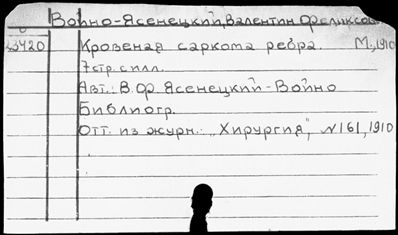 Войно-Ясенецкий, Валентин Феликсов
3420 Кровеная саркома ребра. М., 1910
7 стр. с илл.
Авт.: В.Ф. Ясенецкий-Войно
Библиогр.
Отт. из журн.: "Хирургия", №161, 1910